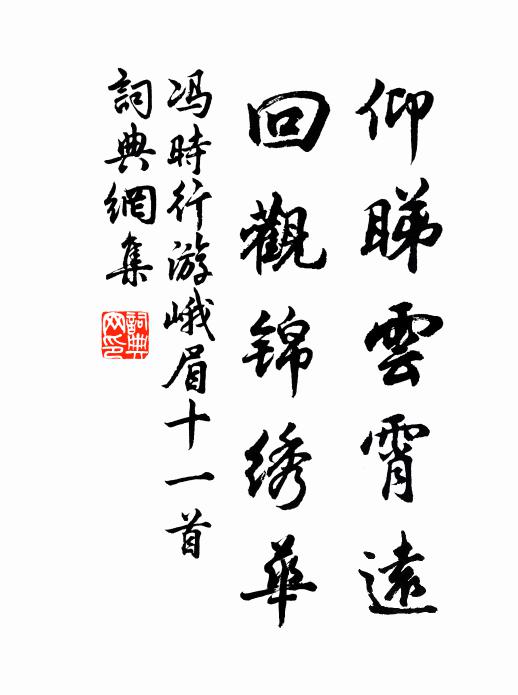 仰睇雲霄遠
回觀锦绣華
冯時行游峨眉十一首
詞典網集
詞典
网印